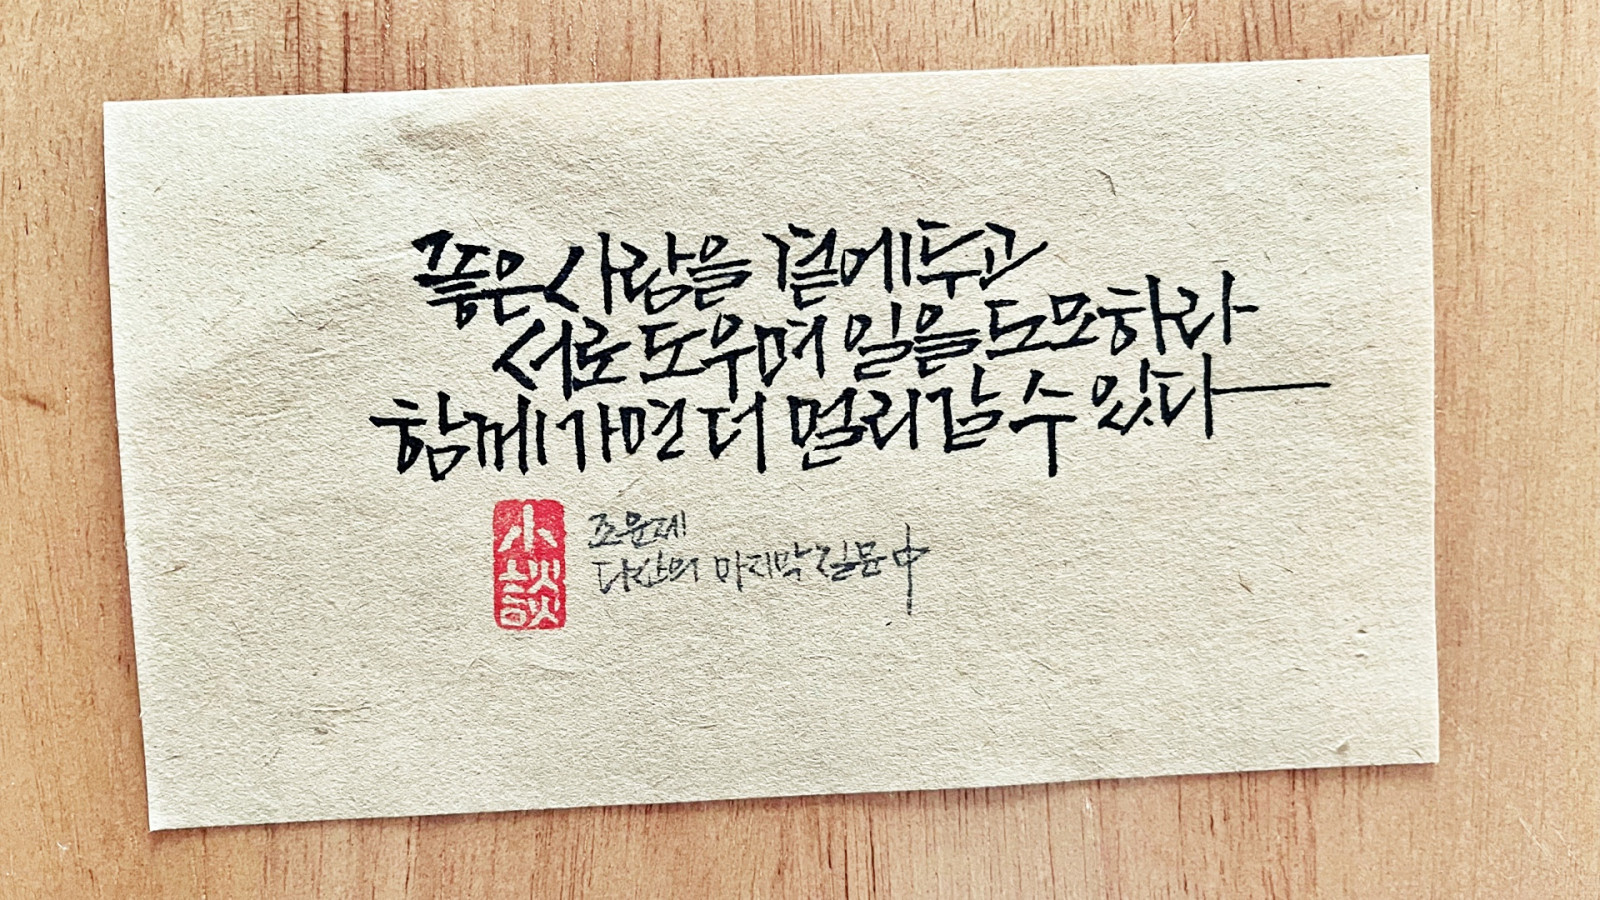 좋은 사람을 곁에 두고
서로 도우며 일을 도모하라
함께 가면 더 멀리 갈 수 있다
小談
조윤제
다산의 마지막 질문 中